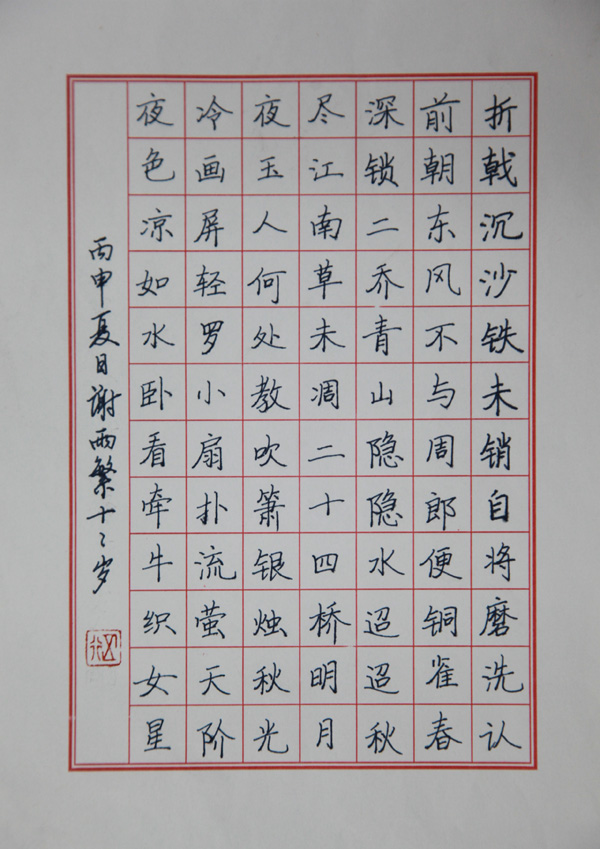 折戟沉沙铁未销自将磨洗认
前朝东风不与周郎便铜雀春
深锁二乔青山隐隐水迢迢秋
尽江南草未凋二十四桥明月
夜玉人何处教吹箫银烛秋光
冷画屏轻罗小扇扑流萤天阶
夜色凉如水卧看牵牛织女星
丙申夏日谢雨繁十二岁